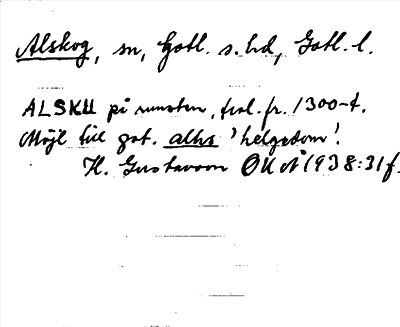 Alskog, sn, Gotl. s. hd, Gotl. l.
ALSKU på runsten, trol. fr. 1300-t.
Möjl till got. alhs 'helgedom'.
H. Gustavson OUÅ 1938:31 f.